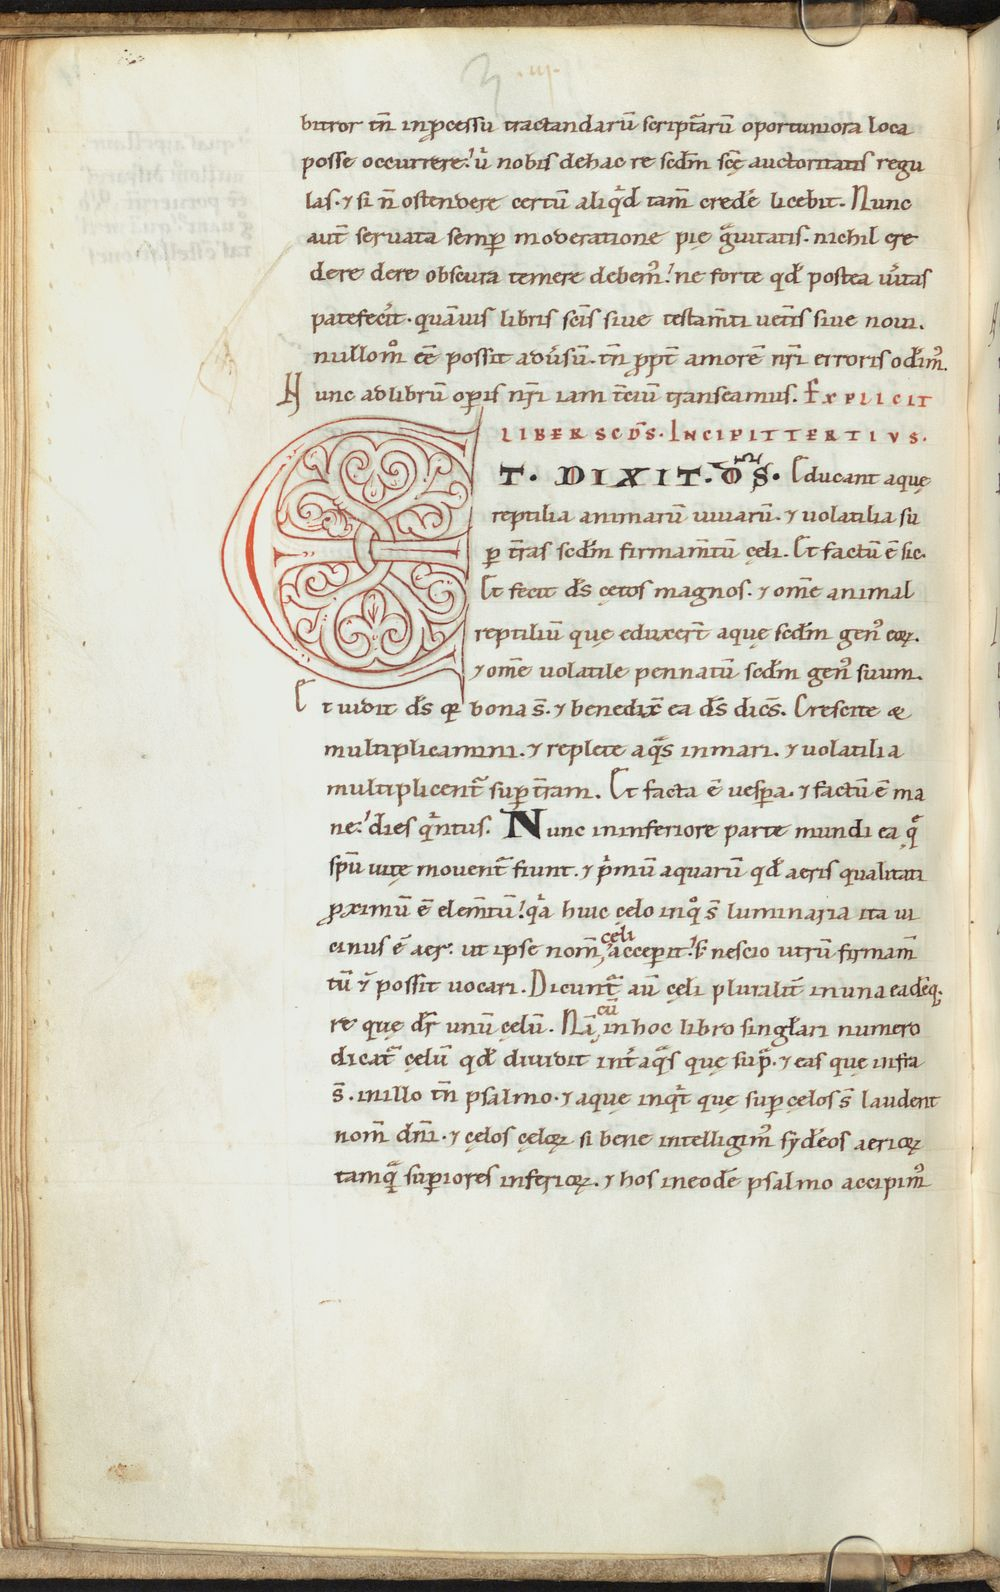 3 .iii.
bitror tñ inpcessu tractandarū scriptarū oportuniora loca
posse occurrere. ul nobis dehac re scdm scē auctoritatis regu
las. ⁊ si ñ ostendere certū aliqd tam̄ crede licebit. Nunc
aut̄ seruata semp moderatione pie grauitatis. nichil cre
dere dere obscura temere debem᷒. ne forte qd postea uitas
patefecit. quāuis libris scis siue testam̄ti uet̄is siue noui.
nullom᷒ eē possit aduersū. tñ ppt̄ amorē nri erroris odim᷒.
Nunc adlibrū opis nri iam t̄ciū transeamus. EXPLICIT
LIBER SCDS. INCIPIT TERTIVS.
ET. DIXIT. DS. Educant aquę
reptilia animarū uiuarū. ⁊ uolatilia su
p t̄ras scdm firmam̄tū cęli. Et factū ē sic.
Et fecit ds cętos magnos. ⁊ om̄e animal
reptiliū quę eduxer̄t aquę scdm gen᷒ eoꝝ.
⁊ om̄e uolatile pennatū scdm gen᷒ suum.
Et uidit ds qr bona s̄. ⁊ benedix̄ ea ds dicēs. Crescite &
multiplicamini. ⁊ replete aqs inmari. ⁊ uolatilia
multiplicent᷑ sup t̄ram. Et facta ē uespa. ⁊ factū ē ma
ne. dies qintus. Nunc ininferiore parte mundi ea q
spū uitę mouent᷑ fiunt. ⁊ pmū aquarū qd aeris qualitati
pximū ē elem̄tū. qa huic cęlo inqo s̄ luminaria ita ui
cinus ē aer. ut ipse nom̄ cęli acceperit. s; nescio utrū firmam̄
tū ⁊ possit uocari. Dicunt᷑ aū cęli pluralit̄ inuna eadēq;
re quę dr unū cęlū. Nā cū inhoc libro singlari numero
dicat᷑ cęlū qd diuidit int aqs quę supra. ⁊ eas quę infra
s̄. inillo tñ psalmo. ⁊ aquę inqt quę sup cęlos s̄ laudent
nom̄ dni. ⁊ cęlos cęloꝝ si bene intelligim᷒ sydeos aerioꝝ
tamq̄ superiores inferioꝝ. ⁊ hos ineode psalmo accipim᷒